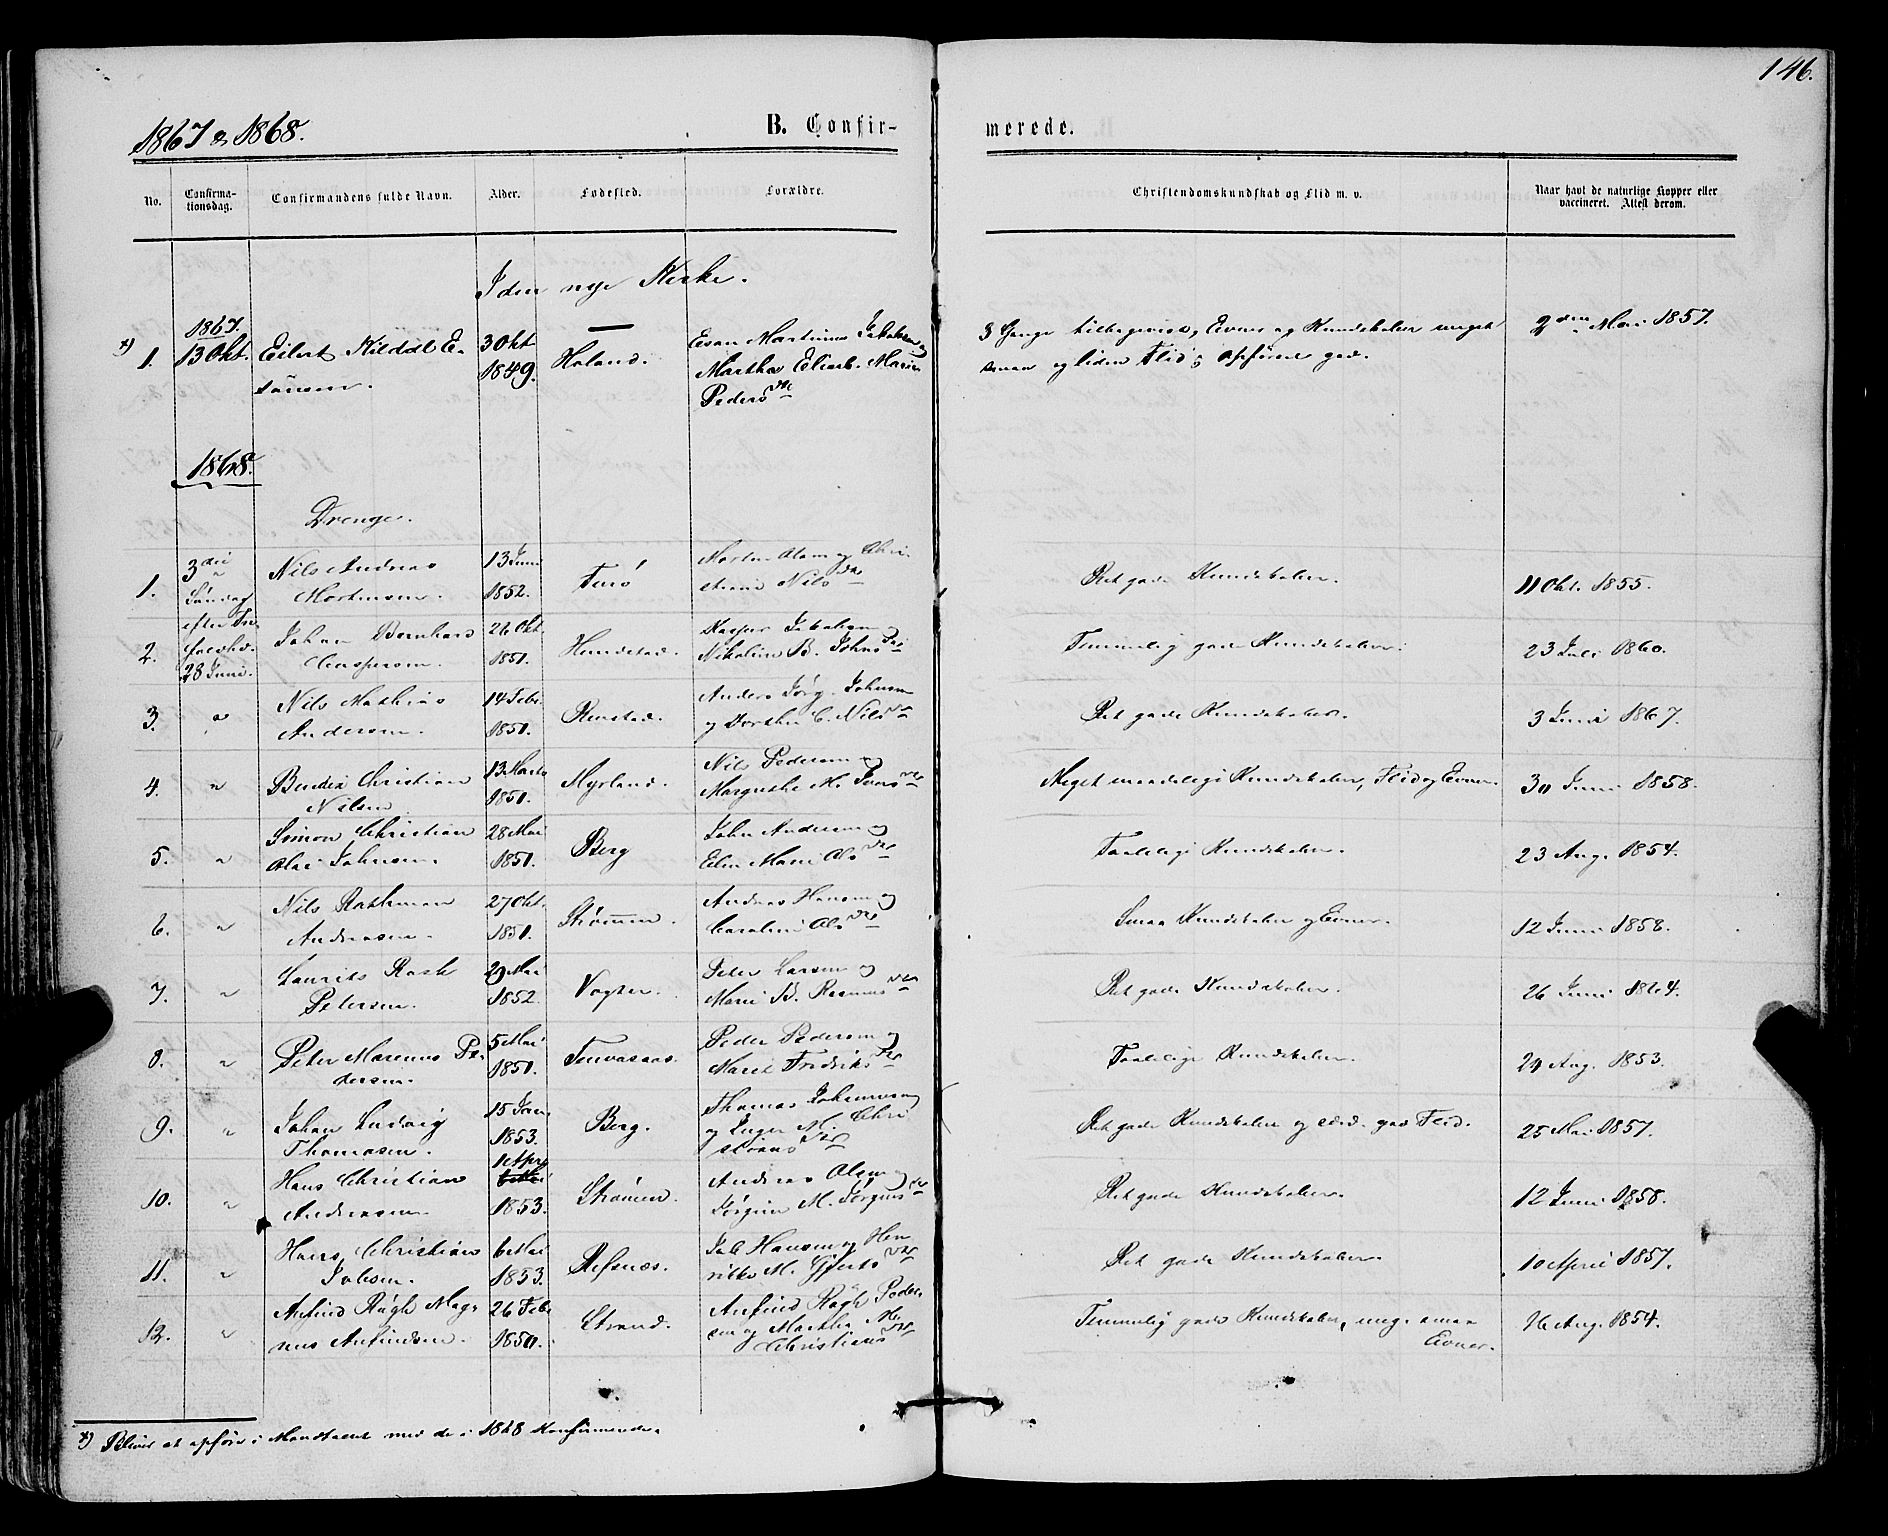 146.
1867 & 1868.
B. Confir-
merede.
No.
Confirma-
tionsdag.
Confirmandens fulde Navn.
Alder.
Fødested.
Forældre.
Christendomskundskab og Flid m. v.
Naar havt de naturlige Kopper eller
vaccineret. Attest derom.
I den nye Kirke.
*) 1.
1867.
13 Okt.
Eilert Kildal E-
3 Okt
1849.
Haland.
Martha Elisab. Marie
Peders Dtr
3 Gange tilbagevist, Evner og Kundskaber meget
smaa og liden Flid; Opførsel god.
2den Mai 1857.
1868.
Drenge.
1.
3die
Søndag
efter Tre-
foldhd.
28 Juni.
Nils Andreas
Mortensen.
13 Juni
1852.
Morten Olsen og Chri-
stine Nils Dtr
Ret gode Kundskaber.
11 Okt. 1855.
2.
Johan Bernhard
Caspersen.
26 Okt.
1851.
Hundstad.
Kasper Jakobsen og
Nikoline B. Johns Dtr
Temmelig gode Kundskaber.
23 Juli 1860.
3.
"
Nils Mathias
Andersen.
14 Febr.
1851.
Renstad.
Anders Jørg. Johnsen
og Dorthe C. Nils Dtr
Ret gode Kundskaber.
3 Juni 1867.
4.
"
Bendix Christian
Nilsen
13 Marts
1851.
Myrland.
Nils Pedersen og
Margrethe M. Jens Dtr
Meget maadelige Kundskaber, Flid og Evner.
30 Juni 1858.
5.
"
Simon Christian
Olai Johnsen.
28 Mai
1851.
Berg
John Andersen og
Elen Marie Ols Dtr
Taalelige Kundskaber.
23 Aug. 1854.
6.
"
Nils Rathman
Andreasen.
27 Okt.
1851.
Strømmen.
Andreas Hansen og
Caroline Ols Dtr
Smaa Kundskaber og Evner.
12 Juni 1858.
7.
"
Laurits Rask
Petersen.
29 Mai
1852.
Vogter.
Peter Larsen og
Marie B. Rasmus Dtr
Ret gode Kundskaber.
26 Juni 1864.
8.
"
Peter Marenus Pe-
dersen.
5 Mai
1851.
Peder Pedersen og
Maret Fredriks Dtr
Taalelige Kundskaber.
29 Aug. 1853.
9.
"
Johan Ludvig
Thomasen.
15 Jan.
1853.
Berg.
Thomas Johannesen
og Inger M. Chri-
stians Dtr
Ret gode Kundskaber og særd. god Flid.
25 Mai 1857.
10.
"
Hans Christian
Andreasen.
1 April
1853.
Strømmen.
Andreas Olsen og
Jørgine M. Jørgens Dtr
Ret gode Kundskaber.
12 Juni 1858.
11.
"
Hans Christian
Jakobsen.
6 Mai
1853.
Refsnæs.
Jak Hansen og Hen-
rikke M. Gjerts Dtr
Ret gode Kundskaber.
10 April 1857.
12.
"
Anfind Røgh Mag-
nus Anfindsen.
26 Febr
1850.
Strand.
Anfind Røgh Peder-
sen og Martha M.
Christians Dtr
Temmelig gode Kundskaber, meg. smaa
Evner.
26 Aug. 1854.
*) Bliver at opføre i Mandtallet med de i 1868 Konfirmerede.